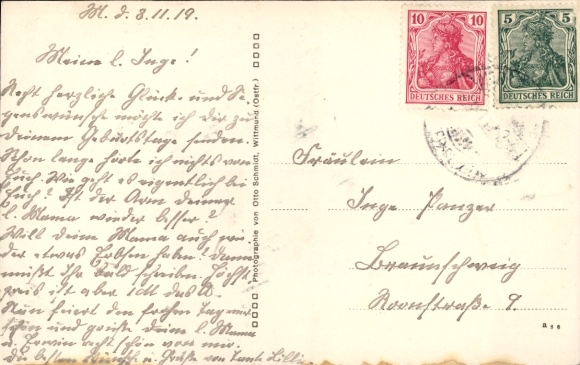 M. d. 3.11.19.
Meine l. Inge!
Recht herzliche Glück- und Se-
genswünsche möchte ich Dir zu
deinem Geburtstage senden.
Schon lange hörte ich nichts von
Euch. Wie geht es eigentlich bei
Euch? Ist der Arm deiner
l. Mama wieder besser?
Will deine Mama auch wie
der etwas Erbsen haben? Dann
müßt Ihr bald schreiben. Höchst
preis ist aber 1 M das
Nun feiert den frohen Tag
schön und grüße deine l. Mama
u. Erwin recht schön von mir.
Die besten Wünsche u. Grüße von Tante Lilli
Photographie von Otto Schmidt, Wittmund (Ostfr.)
10 10
DEUTSCHES REICH
5 5
DEUTSCHES REICH
Fräulein
Inge Panzer
Braunschweig
Roonstraße 9
a 5 6